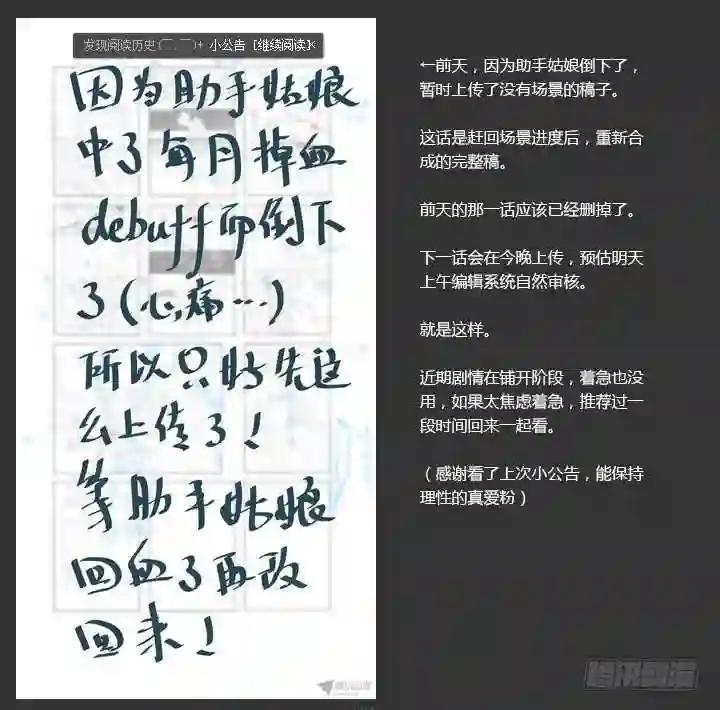 发现阅读历史
小公告 [继续阅读]×
因为助手姑娘
中了每月掉血
debuff而倒下
了(心痛…)
所以只好先这
么上传了!
等助手姑娘
回血了再改
回来!
←前天，因为助手姑娘倒下了，
暂时上传了没有场景的稿子。
这话是赶回场景进度后，重新合
成的完整稿。
前天的那一话应该已经删掉了。
下一话会在今晚上传，预估明天
上午编辑系统自然审核。
就是这样。
近期剧情在铺开阶段，着急也没
用，如果太焦虑着急，推荐过一
段时间回来一起看。
（感谢看了上次小公告，能保持
理性的真爱粉）